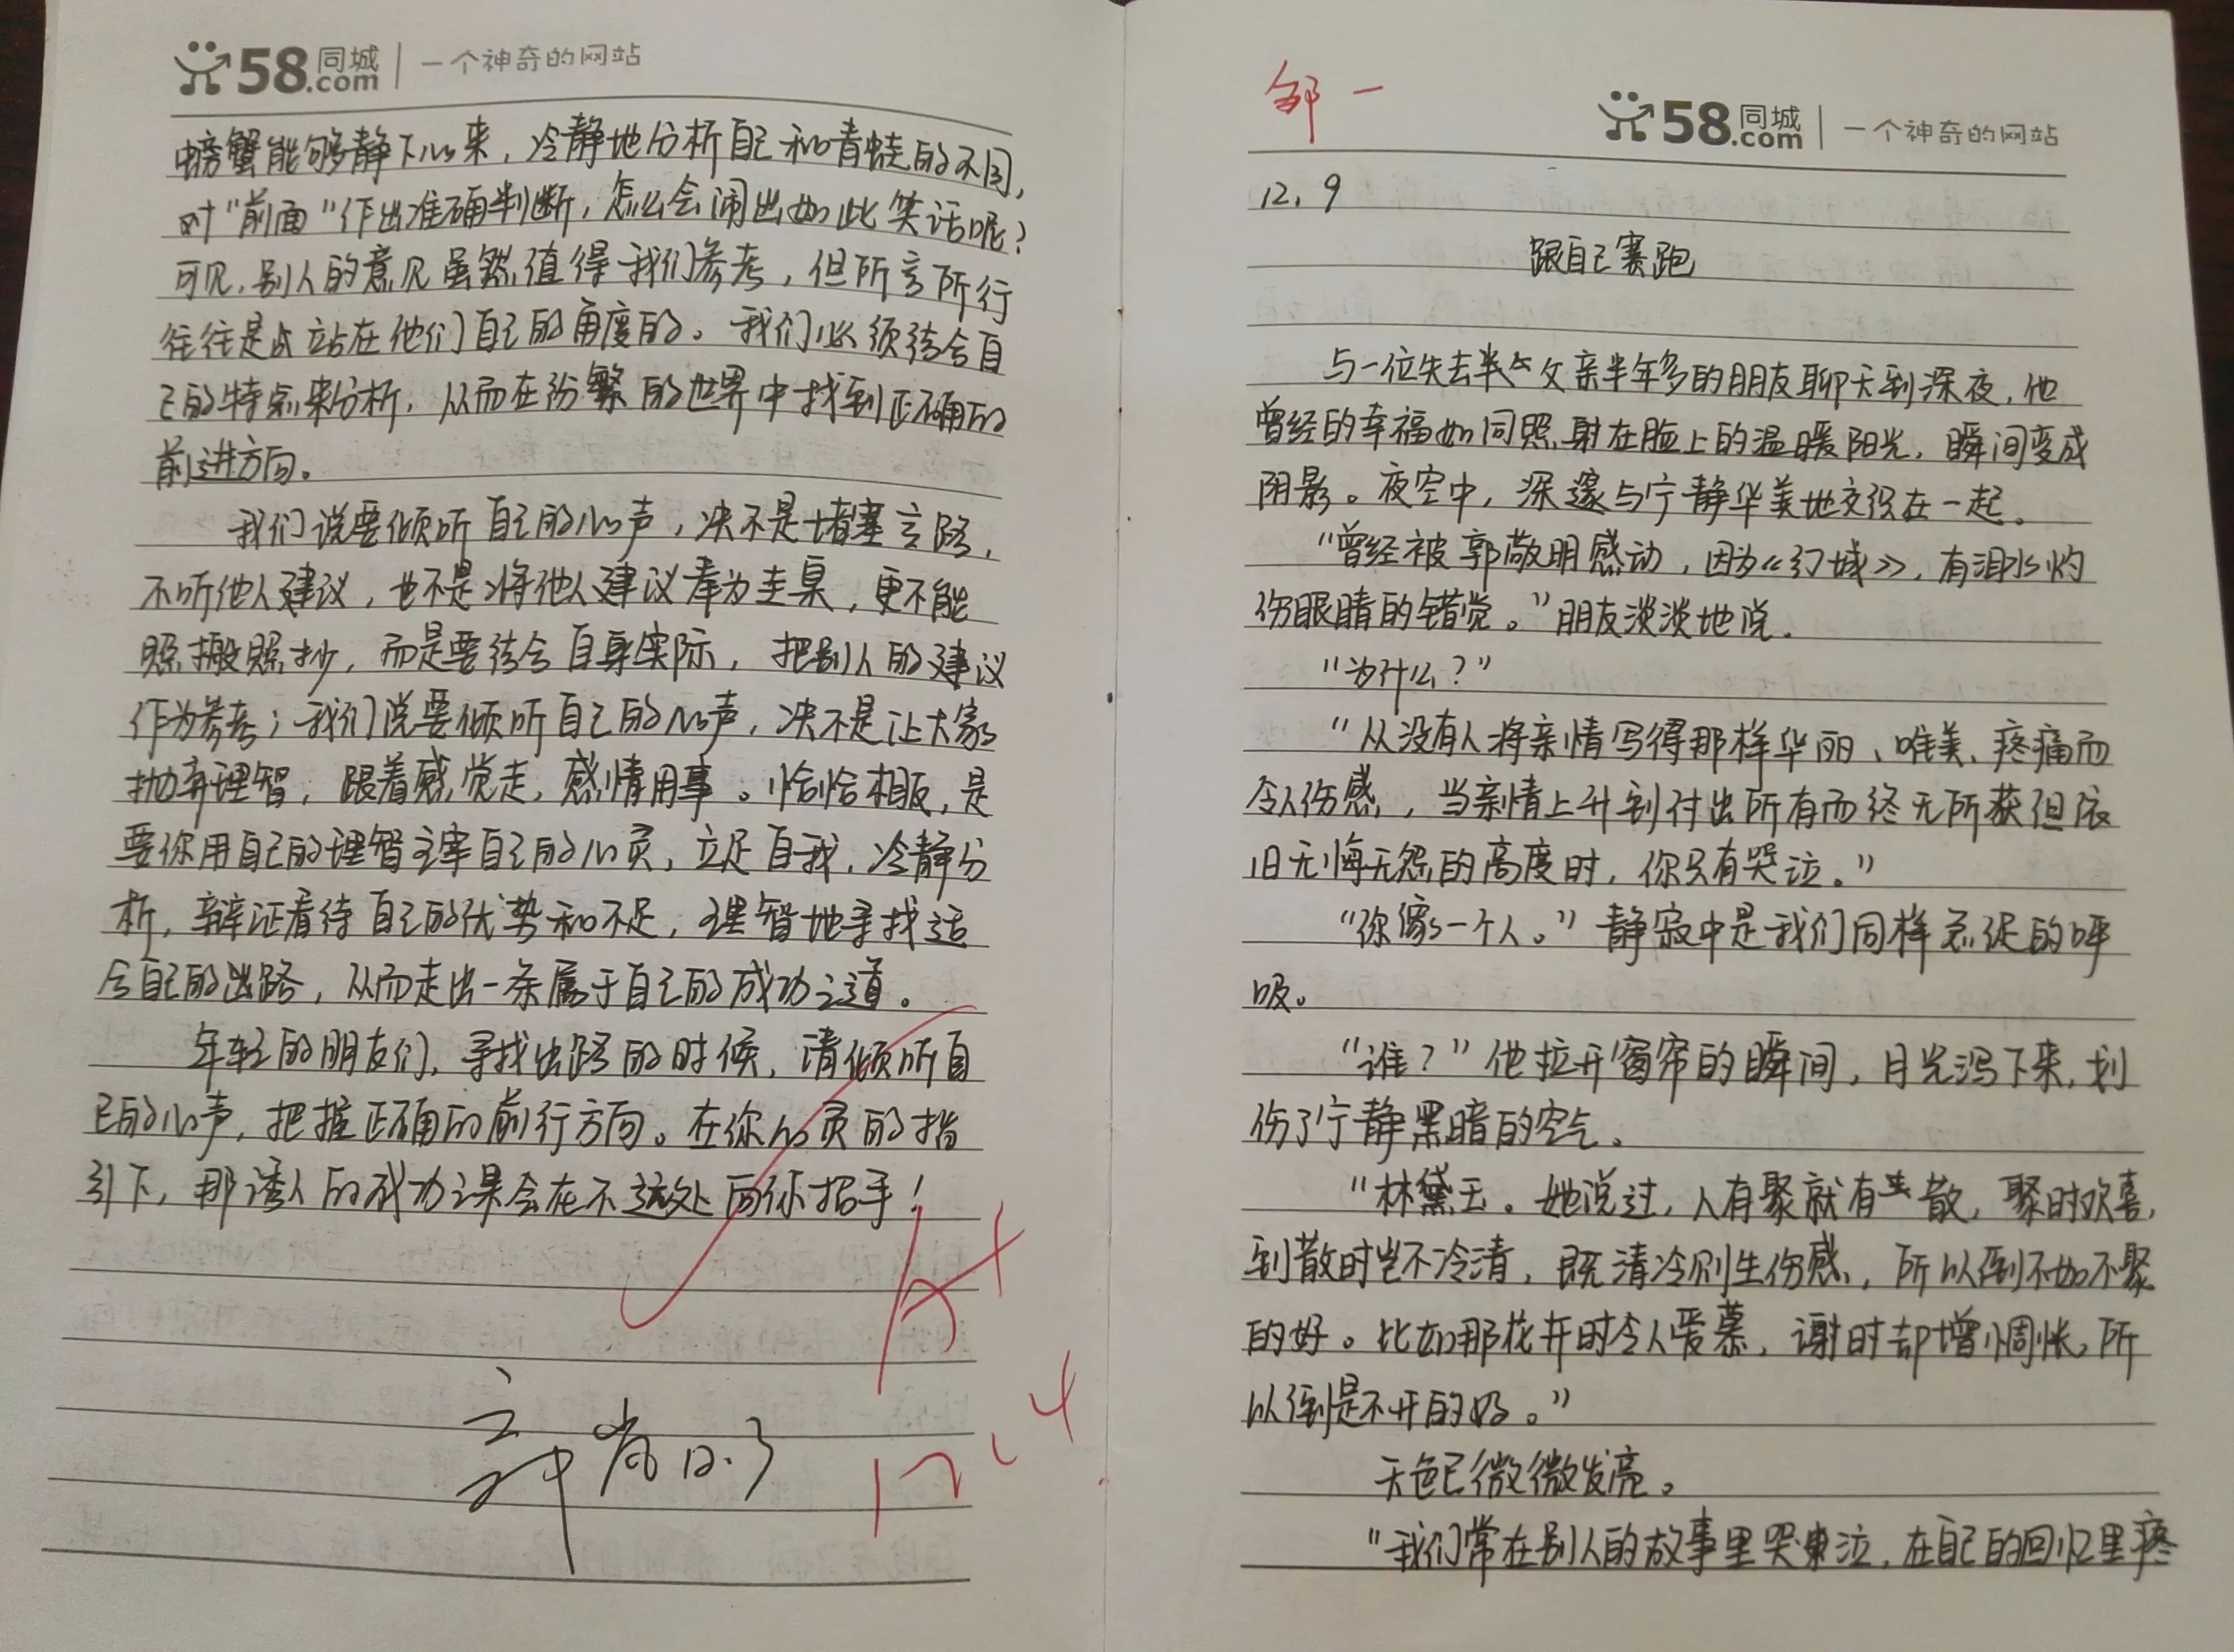 58同城.com 一个神奇的网站
螃蟹能够静下心来，冷静地分析自己和青蛙的不同，
对"前面"作出准确判断，怎么会闹出如此笑话呢？
可见，别人的意见虽然值得我们参考，但所言所行
往往是站在他们自己的角度的。我们必须结合自
己的特点来分析，从而在纷繁的世界中找到正确的
前进方向。
我们说要倾听自己的心声，决不是堵塞言路，
不听他人建议，也不是将他人建议奉为圭臬，更不能
照搬照抄，而是要结合自身实际，把别人的建议
作为参考；我们说要倾听自己的心声，决不是让大家
抛弃理智，跟着感觉走，感情用事。恰恰相反，是
要你用自己的理智主宰自己的心灵，立足自我，冷静分
析，辩证看待自己的优势和不足，理智地寻找适
合自己的出路，从而走出一条属于自己的成功之道。
年轻的朋友们，寻找出路的时候，请倾听自
己的心声，把握正确的前行方向。在你心灵的指
引下，那诱人的成功之果会在不远处向你招手！
A+
12.4
12.3
邹一
58同城.com 一个神奇的网站
12.9
跟自己赛跑
与一位失去父亲半年多的朋友聊天到深夜，他
曾经的幸福如同照射在脸上的温暖阳光，瞬间变成
阴影。夜空中，深邃与宁静华美地交织在一起。
"曾经被郭敬明感动，因为《幻城》，有泪水灼
伤眼睛的错觉。"朋友淡淡地说.
"为什么？"
"从没有人将亲情写得那样华丽、唯美、疼痛而
令人伤感，当亲情上升到付出所有而终无所获但依
旧无悔无怨的高度时，你只有哭泣。"
"你像一个人。"静寂中是我们同样急促的呼
吸。
"谁？"他拉开窗帘的瞬间，月光泻下来，划
伤了宁静黑暗的空气。
"林黛玉。她说过，人有聚就有散，聚时欢喜，
到散时岂不冷清，既清冷则生伤感，所以倒不如不聚
的好。比如那花开时令人爱慕，谢时却增惆怅，所
以倒是不开的好。"
天色已微微发亮。
"我们常在别人的故事里哭泣，在自己的回忆里疼